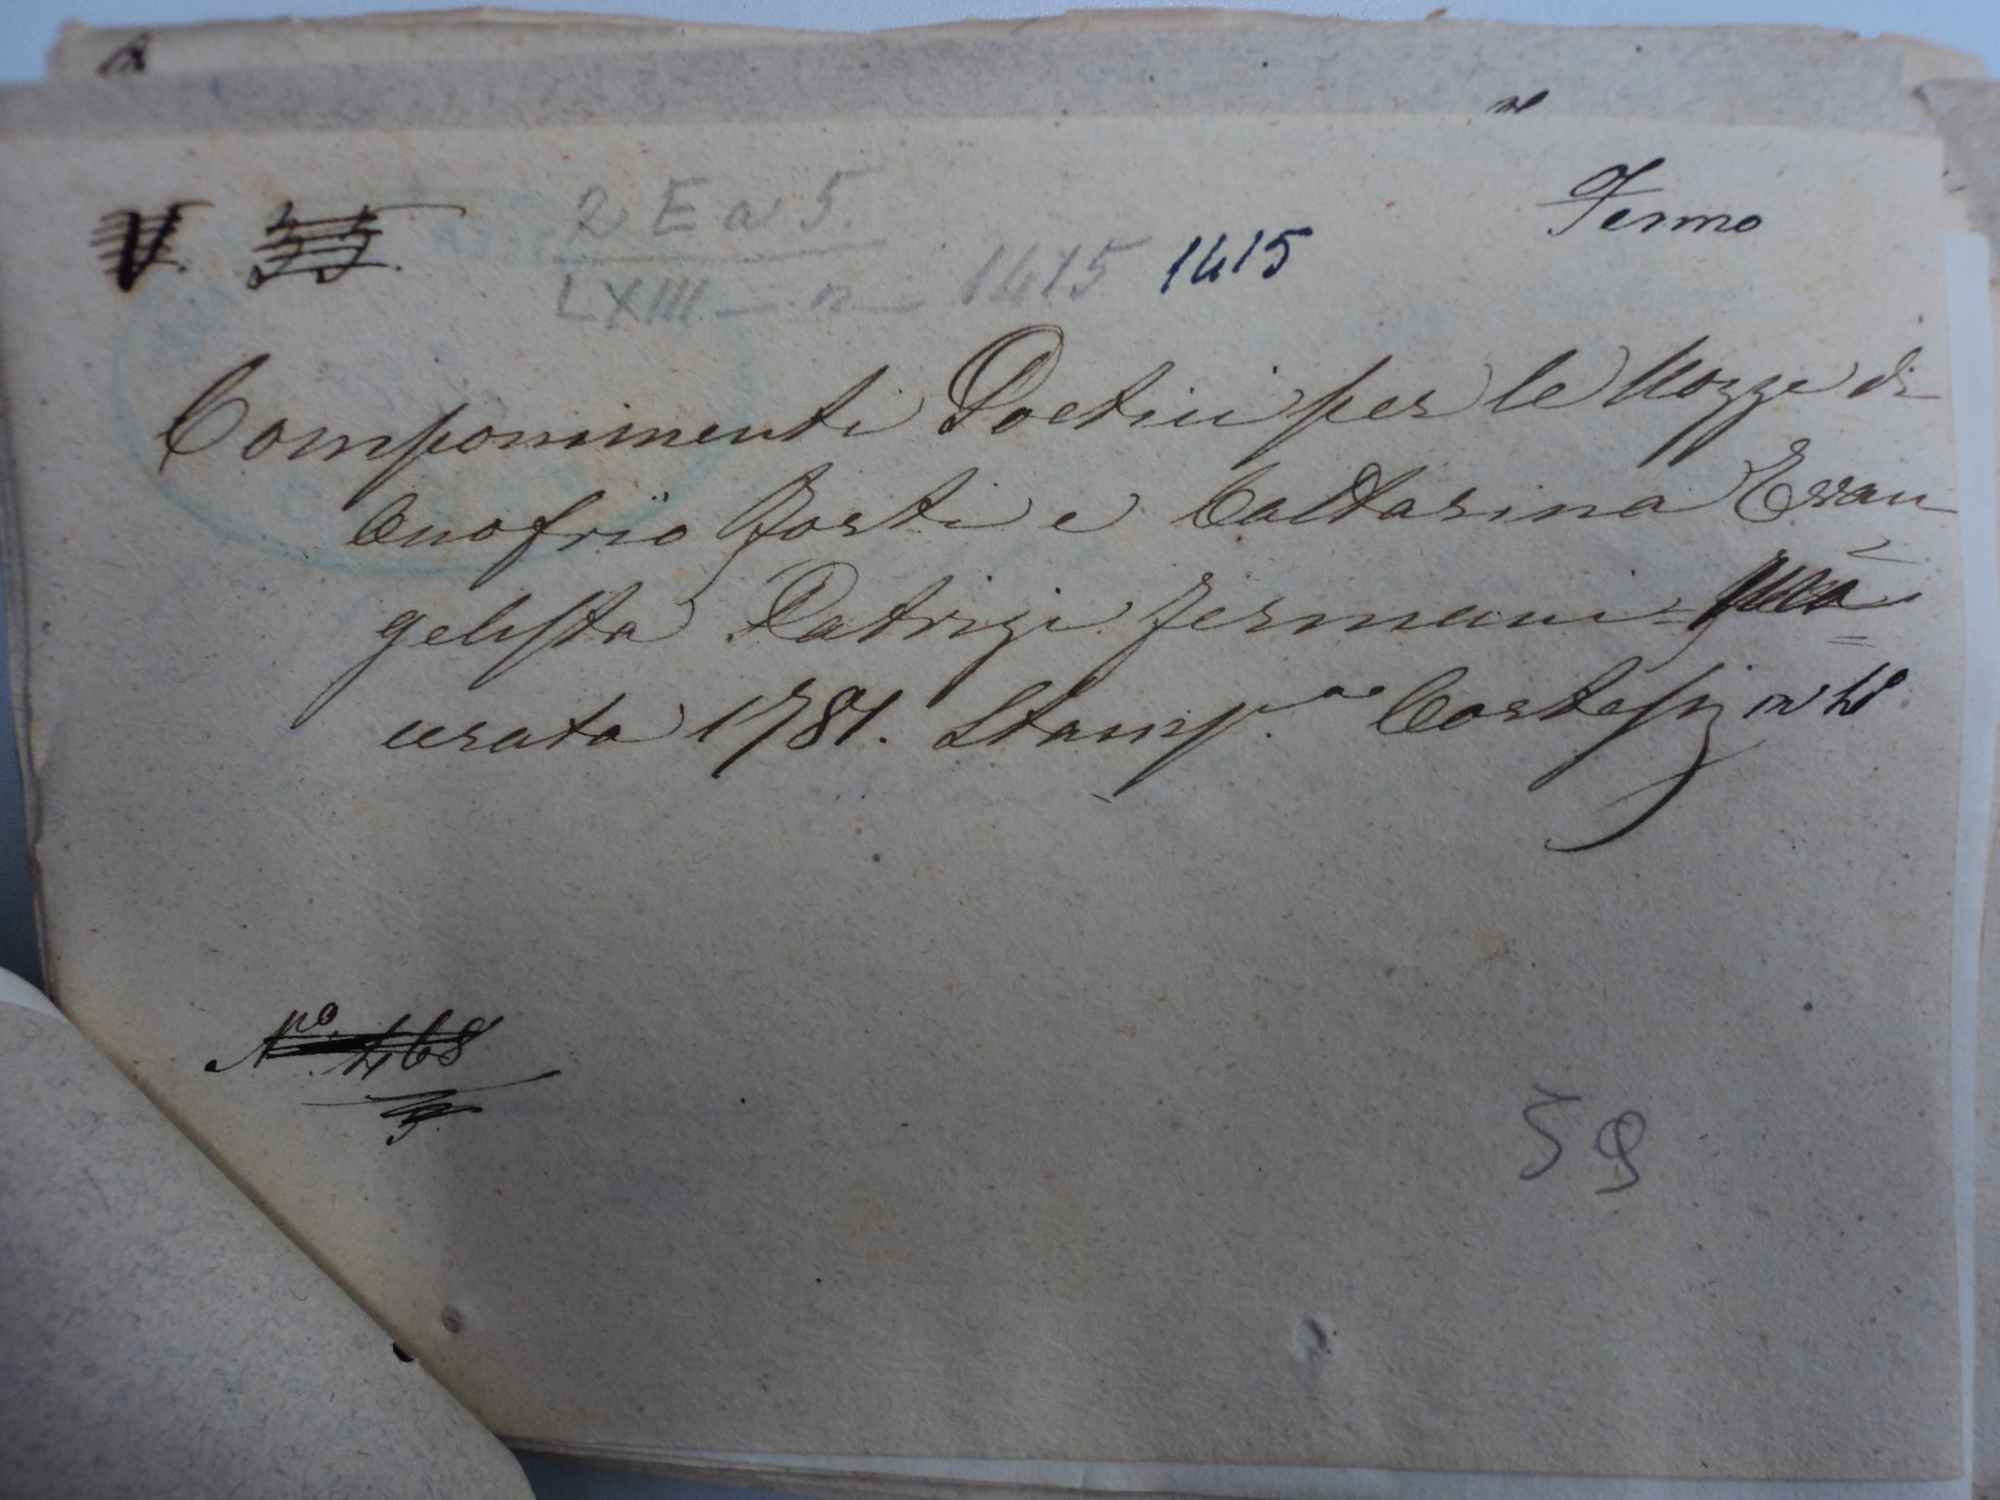 Fermo
V. 35.
2 E a 5.
LXIII - n - 1415 1415
Componimenti Poetici per le Nozze di
Onofrio Forti e Cattarina Evan
gelista Patrizi Fermani = Ma=
cerata 1781. Stamp.a Cortesi in 4o.
No. 468
59